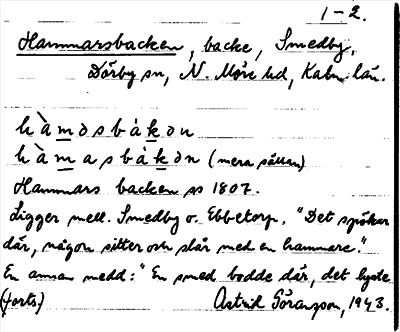 1-2.
Hammarsbacken, backe, Smedby,
Dörby sn, N. Möre hd, Kalm. län.
hàmɔsbákɔn
hàmasbákɔn (mera sällan)
Hammars backen ss 1807.
Ligger mell. Smedby o. Ebbetorp. "Det spöker
där, någon sitter och slår med en hammare."
En annan medd: "En smed bodde där, det lyste
(forts.) Astrid Göransson, 1943.